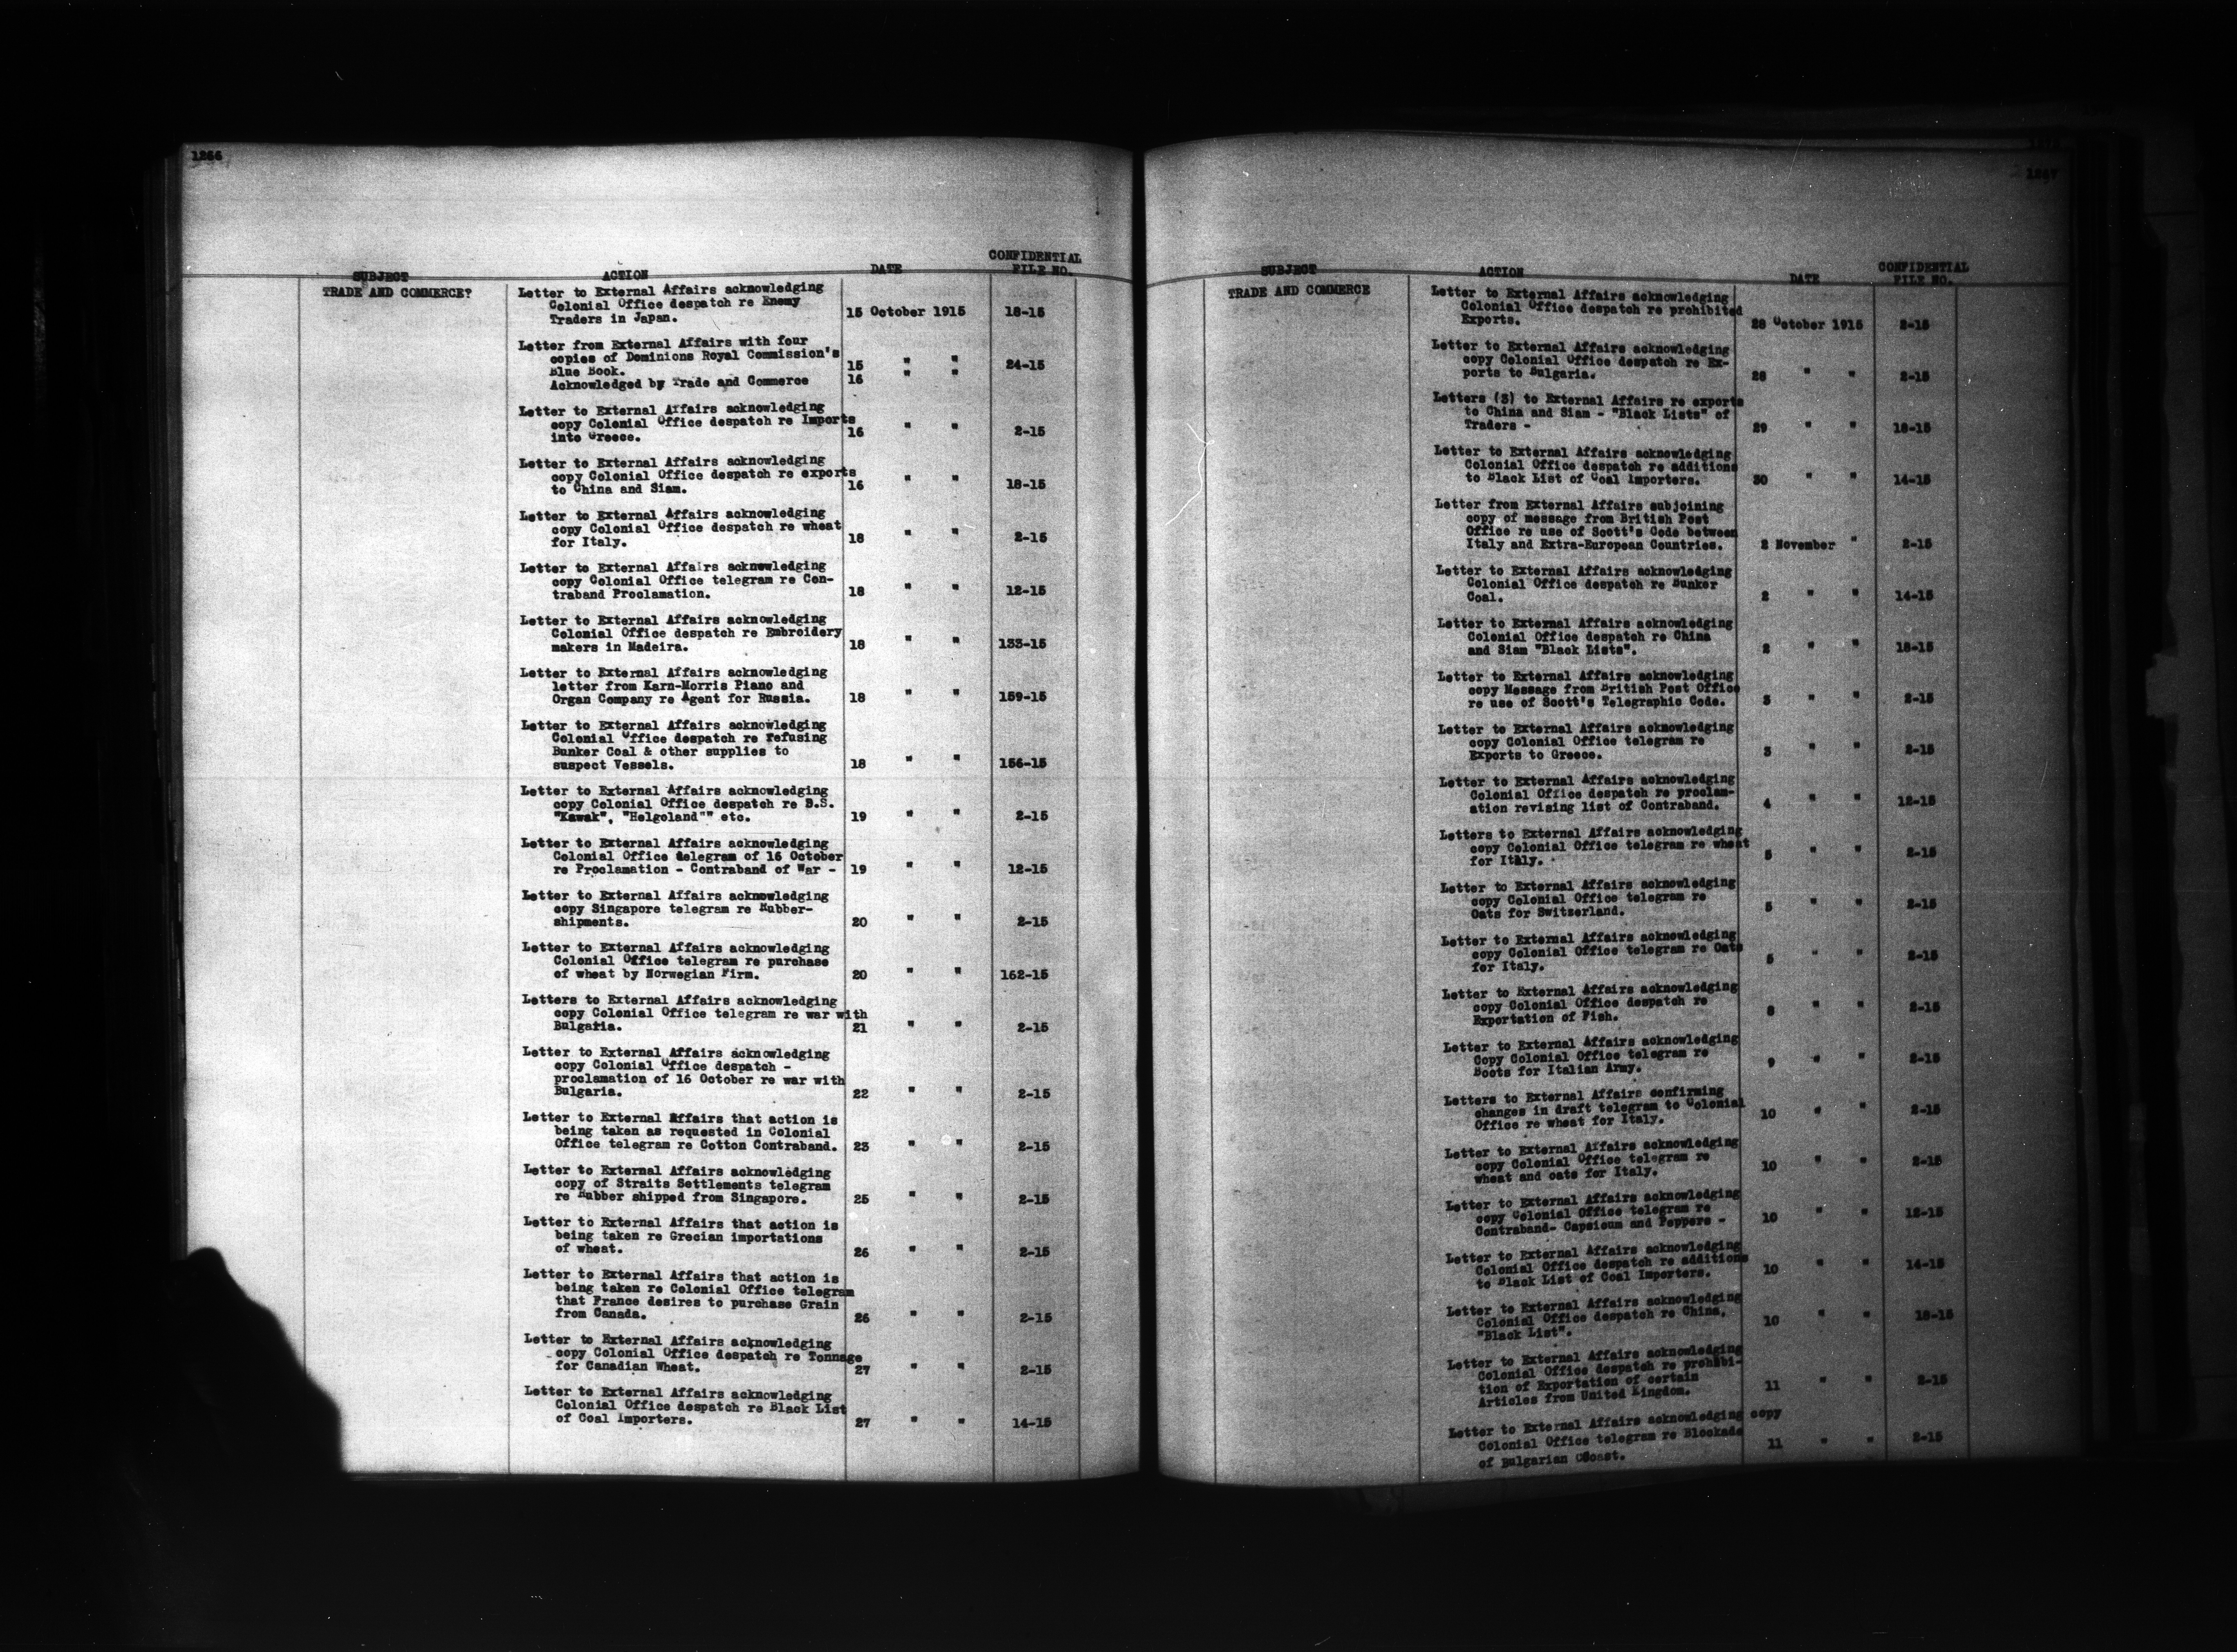 1266
SUBJECT ACTION DATE CONFIDENTIAL
FILE NO.
TRADE AND COMMERCE?
Letter to External Affairs acknowledging
Colonial Office despatch re Enemy
Traders in Japan. 15 October 1915 18-15
Letter from External Affairs with four
copies of Dominions Royal Commission's
Blue Book. 15 " " 24-15
Acknowledged by Trade and Commerce 16 " "
Letter to External Affairs acknowledging
copy Colonial Office despatch re Imports
into Greece. 16 " " 2-15
Letter to External Affairs acknowledging
copy Colonial Office despatch re exports
to China and Siam. 16 " " 18-15
Letter to External Affairs acknowledging
copy Colonial Office despatch re wheat
for Italy. 18 " " 2-15
Letter to External Affairs acknowledging
copy Colonial Office telegram re Con-
traband Proclamation. 18 " " 12-15
Letter to External Affairs acknowledging
Colonial Office despatch re Embroidery
makers in Madeira. 18 " " 133-15
Letter to External Affairs acknowledging
letter from Karn-Morris Piano and
Organ Company re Agent for Russia. 18 " " 159-15
Letter to External Affairs acknowledging
Colonial Office despatch re refusing
Bunker Coal & other supplies to
suspect Vessels. 18 " " 156-15
Letter to External Affairs acknowledging
copy Colonial Office despatch re B.S.
"Kawak", "Helgoland"" etc. 19 " " 2-15
Letter to External Affairs acknowledging
Colonial Office telegram of 16 October
re Proclamation - Contraband of War - 19 " " 12-15
Letter to External Affairs acknowledging
copy Singapore telegram re Rubber-
shipments. 20 " " 2-15
Letter to External Affairs acknowledging
Colonial Office telegram re purchase
of wheat by Norwegian Firm. 20 " " 162-15
Letters to External Affairs acknowledging
copy Colonial Office telegram re war with
Bulgaria. 21 " " 2-15
Letter to External Affairs acknowledging
copy Colonial Office despatch -
proclamation of 16 October re war with
Bulgaria. 22 " " 2-15
Letter to External Affairs that action is
being taken as requested in Colonial
Office telegram re Cotton Contraband. 23 " " 2-15
Letter to External Affairs acknowledging
copy of Straits Settlements telegram
re Rubber shipped from Singapore. 25 " " 2-15
Letter to External Affairs that action is
being taken re Grecian importations
of wheat. 26 " " 2-15
Letter to External Affairs that action is
being taken re Colonial Office telegram
that France desires to purchase Grain
from Canada. 26 " " 2-15
Letter to External Affairs acknowledging
copy Colonial Office despatch re Tonnage
for Canadian Wheat. 27 " " 2-15
Letter to External Affairs acknowledging
Colonial Office despatch re Black List
of Coal Importers. 27 " " 14-15
1267
SUBJECT ACTION DATE CONFIDENTIAL
FILE NO.
TRADE AND COMMERCE
Letter to External Affairs acknowledging
Colonial Office despatch re prohibited
Exports. 28 October 1915 2-15
Letter to External Affairs acknowledging
copy Colonial Office despatch re Ex-
ports to Bulgaria. 28 " " 2-15
Letters (3) to External Affairs re exports
to China and Siam - "Black Lists" of
Traders - 29 " " 18-15
Letter to External Affairs acknowledging
Colonial Office despatch re additions
to Black List of Coal Importers. 30 " " 14-15
Letter from External Affairs subjoining
copy of message from British Post
Office re use of Scott's Code between
Italy and Extra-European Countries. 2 November " 2-15
Letter to External Affairs acknowledging
Colonial Office despatch re Bunker
Coal. 2 " " 14-15
Letter to External Affairs acknowledging
Colonial Office despatch re China
and Siam "Black Lists". 2 " " 18-15
Letter to External Affairs acknowledging
copy Message from British Post Office
re use of Scott's Telegraphic Code. 3 " " 2-15
Letter to External Affairs acknowledging
copy Colonial Office telegram re
Exports to Greece. 3 " " 2-15
Letter to External Affairs acknowledging
Colonial Office despatch re proclam-
ation revising list of Contraband. 4 " " 12-15
Letters to External Affairs acknowledging
copy Colonial Office telegram re wheat
for Italy. 5 " " 2-15
Letter to External Affairs acknowledging
copy Colonial Office telegram re
Oats for Switzerland. 5 " " 2-15
Letter to External Affairs acknowledging
copy Colonial Office telegram re Oats
for Italy. 5 " " 2-15
Letter to External Affairs acknowledging
copy Colonial Office despatch re
Exportation of Fish. 8 " " 2-15
Letter to External Affairs acknowledging
Copy Colonial Office telegram re
Boots for Italian Army. 9 " " 2-15
Letters to External Affairs confirming
changes in draft telegram to Colonial
Office re wheat for Italy. 10 " " 2-15
Letter to External Affairs acknowledging
copy Colonial Office telegram re
wheat and oats for Italy. 10 " " 2-15
Letter to External Affairs acknowledging
copy Colonial Office telegram re
Contraband- Capsicum and Peppers - 10 " " 12-15
Letter to External Affairs acknowledging
Colonial Office despatch re additions
to Black List of Coal Importers. 10 " " 14-15
Letter to External Affairs acknowledging
Colonial Office despatch re China.
"Black List". 10 " " 18-15
Letter to External Affairs acknowledging
Colonial Office despatch re prohibi-
tion of Exportation of certain
Articles from United Kingdom. 11 " " 2-15
Letter to External Affairs acknowledging copy
Colonial Office telegram re Blockade
of Bulgarian Coast. 11 " " 2-15